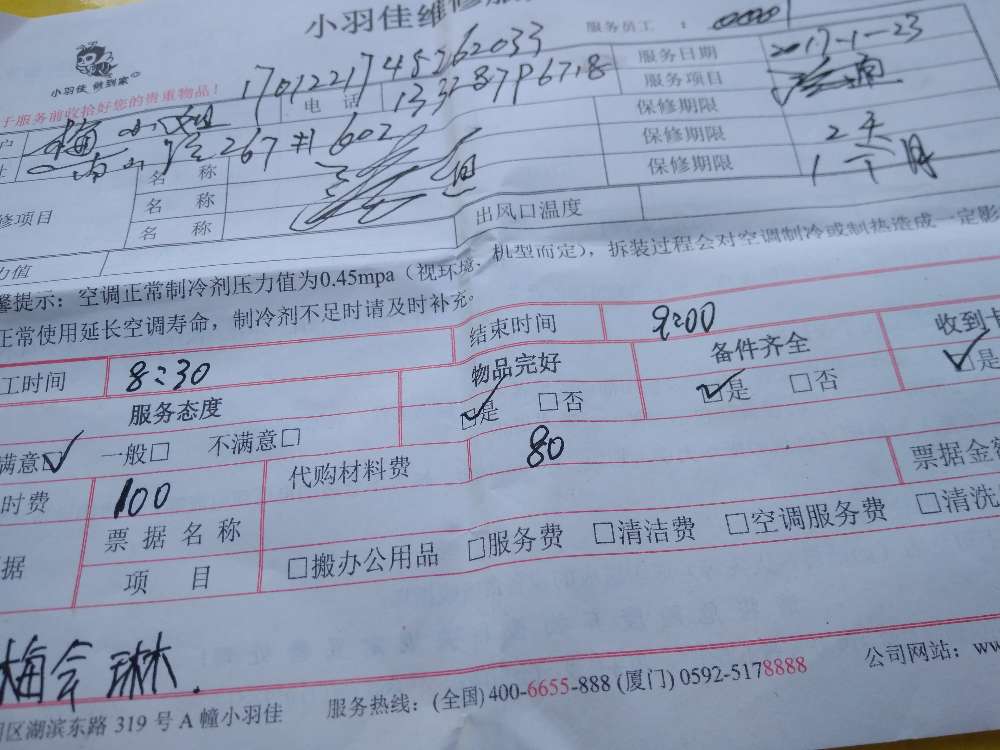 小羽佳维修服
服务员工 ：
小羽佳 做到家
1701221748262033
服务日期 2017-1-23
于服务前收拾好您的贵重物品！
户 梅小姐 电 话
服务项目
267#602
保修期限
名 称
保修期限 2天
修项目 名 称
保修期限 1个月
名 称
出风口温度
力值
馨提示：空调正常制冷剂压力值为0.45mpa（视环境、机型而定），拆装过程会对空调制冷或制热造成一定影
正常使用延长空调寿命，制冷剂不足时请及时补充。
工时间 8:30 结束时间 9:00
服务态度 物品完好 备件齐全 收到卡
满意☑ 一般□ 不满意□ ☑是 □否 ☑是 □否 ☑是
时费 100 代购材料费 80 票据金额
据 票 据 名 称
项 目 □搬办公用品 □服务费 □清洁费 □空调服务费 □清洗
梅会琳.
区湖滨东路 319 号 A 幢小羽佳 服务热线：(全国) 400-6655-888 (厦门) 0592-5178888 公司网站：ww